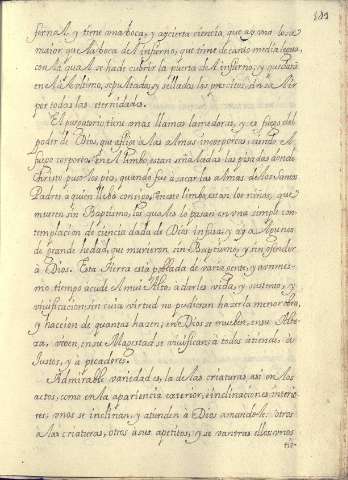 189
forna A. y tiene una boca, y a cierta ciencia, que ay una losa
maior que la boca del infierno, que tiene de canto media legua,
con la qual se ha de cubrir la puerta del infierno, y quedarà
en el abismo, sepultados, y sellados los prescitos, sin salir
por todas las eternidades.
El purgatorio tiene unas llamas lamedoras, y es fuego del
poder de Dios, que aflige a las Almas incorporeas, siendo el
fuego corporeo. En el limbo estan señaladas las pisadas donde
Christo puso los pies, quando fue à sacar las almas de los santos
Padres a quien llebò consigo. En este limbo estan los niños, que
mueren sin Baptismo, los quales lo pasan en una simple con-
templacion de ciencia dada de Dios infusa, y ay algunos
de grande hedad, que murieron sin Baptismo, y sin ofender
à Dios. Esta tierra està poblada de varia gente, y a un mes-
mo tiempo acude el mui Alto, a darles vida, y sustento, y
vivificacion, sin cuia virtud no pudieran hazer la menor obra,
y haccion de quantas hazen; en Dios se mueben, en su Alte-
za, viven, en su Magestad se vivifican, à todos atiende, à
Justos, y à pecadores.
Admirable variedad es, la de las criaturas, asi en los
actos, como en la apariencia exterior, è inclinaciones interio-
res, unos se inclinan, y atienden à Dios amandole: otros
a las criaturas, otros a sus apetitos, y se van tras ellos unos